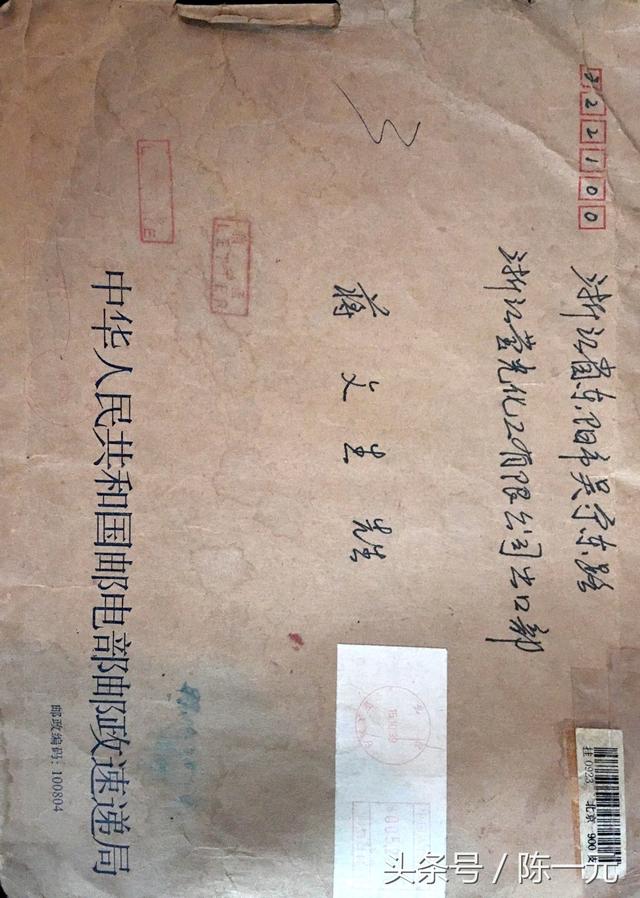 322100
浙江省东阳市吴宁东路
浙江萤光化工有限公司出口部
蒋文生 先生
挂 0923 北京 900
中华人民共和国邮电部邮政速递局
邮政编码：100804
头条号 / 陈一元